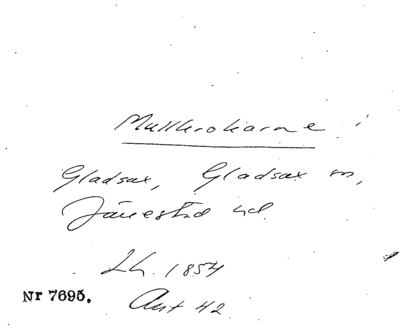 Mullkrokarne i
Gladsax, Gladsax sn,
Järrestad hd.
Lh. 1854
Nr 7695.
Ant 42